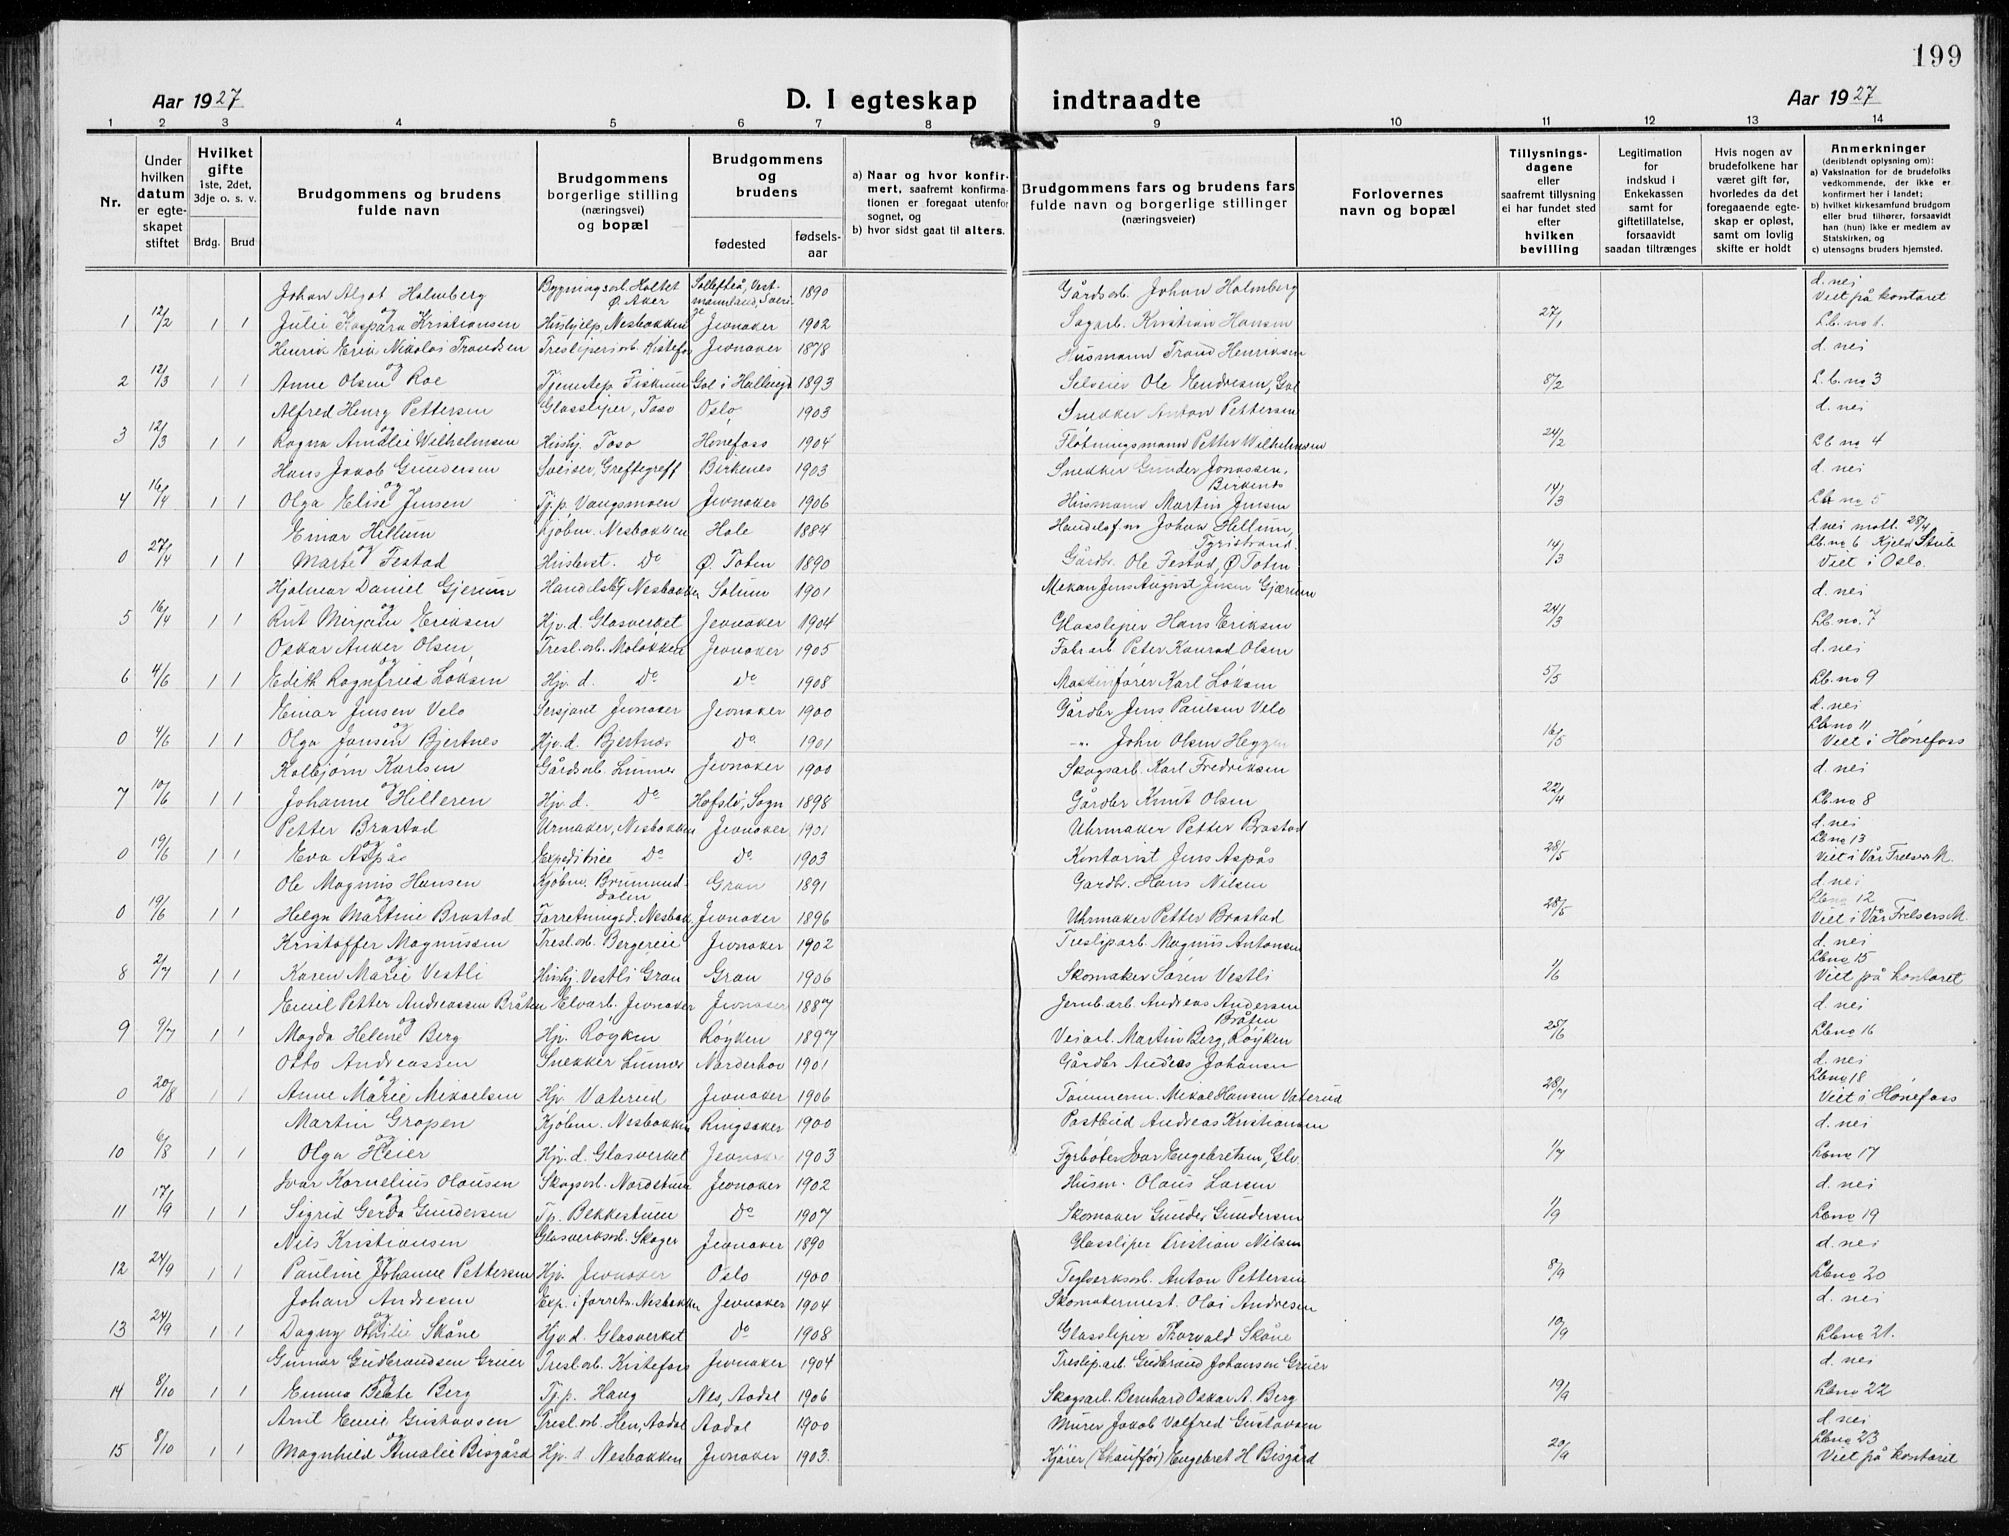 199
Aar 1927 D. I egteskap indtraadte Aar 1927
1 2 3 4 5 6 7 8 9 10 11 12 13 14
Nr.
Under hvilken datum er egte-skapet stiftet
Hvilket gifte 1ste, 2det, 3dje o. s. v.
Brdg. Brud
Brudgommens og brudens fulde navn
Brudgommens borgerlige stilling (næringsvei) og bopæl
Brudgommens og brudens
fødested fødsels-aar
a) Naar og hvor konfir-mert, saafremt konfirma-tionen er foregaat utenfor sognet, og
b) hvor sidst gaat til alters.
Brudgommens fars og brudens fars fulde navn og borgerlige stillinger (næringsveier)
Forlovernes navn og bopæl
Tillysnings-dagene eller saafremt tillysning ei har fundet sted efter hvilken bevilling
Legitimation for indskud i Enkekassen samt for giftetillatelse, forsaavidt saadan tiltrænges
Hvis nogen av brudefolkene har været gift før, hvorledes da det foregaaende egte-skap er opløst, samt om lovlig skifte er holdt
Anmerkninger (deriblandt oplysning om):
a) Vaksination for de brudefolks vedkommende, der ikke er konfirmert her i landet;
b) hvilket kirkesamfund brudgom eller brud tilhører, forsaavidt han (hun) ikke er medlem av Statskirken, og
c) utensogns bruders hjemsted.
Johan Algot Holmberg Bygningsarb. Holtet Ø. Aker Sollefteå, Vest-mannland, Sverige 1890 Gårdsarb. Johan Holmberg d. nei Viet på kontoret
1 12/2 1 1 og Julie Kaspara Kristiansen Hushjelp, Nesbakken Jevnaker 1902 Sagarb. Kristian Hansen 27/1 Lb. no 1.
Henrik Erik Nikolai Trondsen Tresliperiarb. Kistefos Jevnaker 1878 Husmann Trond Henriksen d. nei
2 12/3 1 1 og Anne Olsen Roe Tjenestep. Fiskum Gol i Hallingd 1893 Selveier Ole Endresen, Gol 8/2 L.b. no 3
Alfred Henry Pettersen Glassliper, Toso Oslo 1903 Snedker Anton Pettersen d. nei
3 12/3 1 1 og Ragna Amalie Wilhelmsen Hushj. Toso Hønefoss 1904 Fløtningsmann Petter Wilhelmsen 24/2 Lb no 4
Hans Jakob Gundersen Sveiser, Greftegreff Birkenes 1903 Snedker Gunder Jonassen, Birkenes d. nei
4 16/4 1 1 og Olga Elise Jensen Tj.p. Vangsmoen Jevnaker 1906 Husmann Martin Jensen 14/3 Lb no 5
Einar Hillum Kjøbm. Nesbakken Hole 1884 Handelsfm Johan Hillum, Tyristrand. d. nei mott. 28/4
0 27/4 1 1 og Marte Festad Husbest. Do Ø. Toten 1890 Gårdbr. Ole Festad, Ø Toten 14/3 Lb. no 6 Kjeld Stub Viet i Oslo.
Hjalmar Daniel Gjerum Handelsbt Nesbakken Solum 1901 Mekan Jens August Jensen Gjærum d. nei
5 16/4 1 1 og Rut Mirjam Eriksen Hjv. d. Glasverket Jevnaker 1904 Glassliper Hans Eriksen 24/3 Lb. no. 7
Oskar Anker Olsen Tresl.arb. Moløkken Jevnaker 1905 Fabr arb Peter Konrad Olsen d. nei
6 4/6 1 1 og Edith Ragnfried Løksen Hjv. d. Do Do 1908 Maskinfører Karl Løksen 5/5 Lb. no 9
Einar Jensen Velo Sersjant Jevnaker Jevnaker 1900 Gårdbr Jens Paulsen Velo d. nei
0 4/6 1 1 og Olga Jonsen Bjertnes Hjv. d. Bjertnæs Do. 1901 -"- John Olsen Heggen 16/5 Lb no 11 Viet i Hønefoss
Kolbjørn Karlsen Gårdsarb. Lunner Jevnaker 1900 Skogsarb. Karl Fredriksen d. nei
7 10/6 1 1 og Johanne Hilleren Hjv. d. Do Hafslo, Sogn 1898 Gårdbr Knut Olsen 22/4 Lb. no 8
Petter Brastad Urmaker, Nesbakken Jevnaker 1901 Uhrmaker Petter Brastad d. nei
0 19/6 1 1 og Eva Aspås Expeditrice Do Do 1903 Kontorist Jens Aspås 28/5 Lb no 13 Viet i Vår Frelsers M.
Ole Magnus Hansen Kjøbm. Brumund-dalen Gran 1891 Gardbr. Hans Nilsen d. nei
0 19/6 1 1 og Helga Martine Brastad Forretningsd. Nesbak. Jevnaker 1896 Uhrmaker Petter Brastad 28/5 Lb no 12 Viet i Vår Frelsers M.
Kristoffer Magnussen Tresl.arb. Bergereie Jevnaker 1902 Treslip arb. Magnus Antonsen d. nei
8 2/7 1 1 og Karen Marie Vestli Hushj. Vestli Gran Gran 1906 Skomaker Søren Vestli 1/6 Lb no 15 Viet på kontoret
Emil Petter Andreassen Bråten Elvarb. Jevnaker Jevnaker 1887 Jernb.arb. Andreas Andersen Bråten d. nei
9 9/7 1 1 og Magda Helene Berg Hp. Røyken Røyken 1897 Veiarb. Martin Berg, Røyken 25/6 Lb no 16
Otto Andreassen Snekker Lunner Norderhov 1901 Gårdbr Andreas Johansen d. nei
0 20/8 1 1 og Anne Marie Mikaelsen Hjv. Vaterud Jevnaker 1906 Tømmerm. Mikal Hansen Vaterud 28/7 Lb no 18 Viet i Hønefoss
Martin Gropen Kjøbm. Nesbakken Ringsaker 1900 Postbud Andreas Kristiansen d. nei
10 6/8 1 1 og Olga Heier Hjv. d. Glasverket Jevnaker 1903 Fyrbøter Ivar Engebretsen, Glv. 1/7 Lb no 17
Ivar Kornelius Olausen Skogsarb. Nordstuen Jevnaker 1902 Husm. Olaus Larsen d. nei
11 17/9 1 1 og Sigrid Gerda Gundersen Tp. Bekkestuen Do 1907 Skomaker Gunder Gundersen 1/9 Lb no 19
Nils Kristiansen Glasverksarb. Skoger Jevnaker 1890 Glassliper Kristian Nilsen d. nei
12 24/9 1 1 og Pauline Johanne Pettersen Hjv. Jevnaker Oslo 1900 Teglverksarb. Anton Pettersen 8/9 Lb no 20
Johan Andresen Exp. i forretn. Nesbakken Jevnaker 1904 Skomakermest. Olai Andresen d. nei
13 24/9 1 1 og Dagny Otilie Skåne Hjv. d. Glasverket Do 1908 Glassliper Thorvald Skåne 10/9 Lb no 21.
Gunnar Gudbrandsen Greier Tresl.arb. Kistefoss Jevnaker 1904 Treslip.arb. Gudbrand Johansen Greier d. nei
14 8/10 1 1 og Emma Beate Berg Tj. p. Haug Nes, Aadal 1906 Skogsarb. Bernhard Oskar A. Berg 19/9 Lb no 22
Arvil Emil Gustavsen Tresl.arb Hen, Aadal Aadal 1900 Murer Jakob Valfred Gustavsen d. nei
15 8/10 1 1 og Magnhild Amalie Bisgård Hjv. d Nesbakken Jevnaker 1903. Kjører (Chauffør) Engebret H Bisgård 20/9 Lb no 23 Viet på kontoret